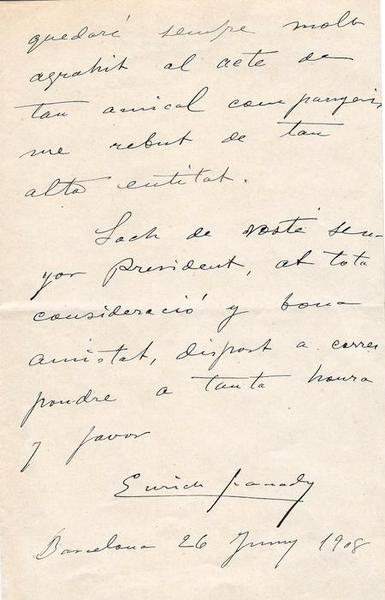 quedaré sempre molt
agrahit al acte de
tan amical companyeris
me rebut de tan
alta entitat.
Soch de vosté sen-
yor President, ab tota
consideració y bona
amistat, dispost a corres
pondre a tanta honra
y favor
Enrich Granados
Barcelona 26 Juny 1908